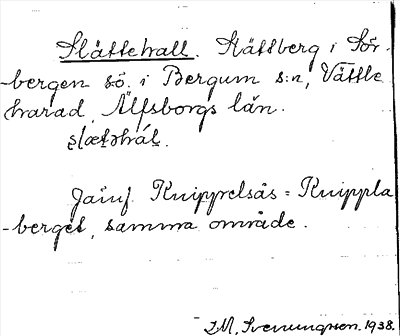 Slättehall. Slättberg i Sör-
-bergen sö. i Bergum s:n, Vättle
harad, Älfsborgs län.
slætəhál.
Jämf. Knippelsås = Knippla
-berget, samma område.
J.M. Svenungsson. 1938.